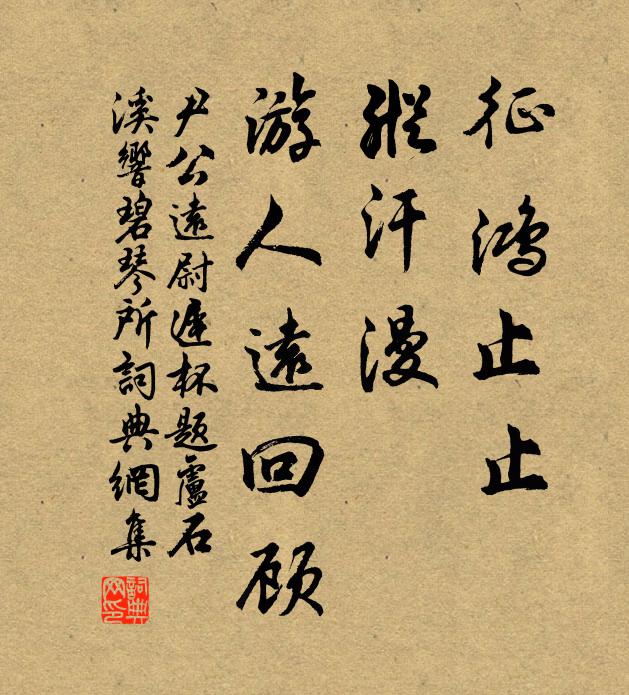 征鴻止止
縱汗漫
游人遠回顧
尹公遠尉遲杯題盧石
溪響碧琴所詞典網集
詞典网印